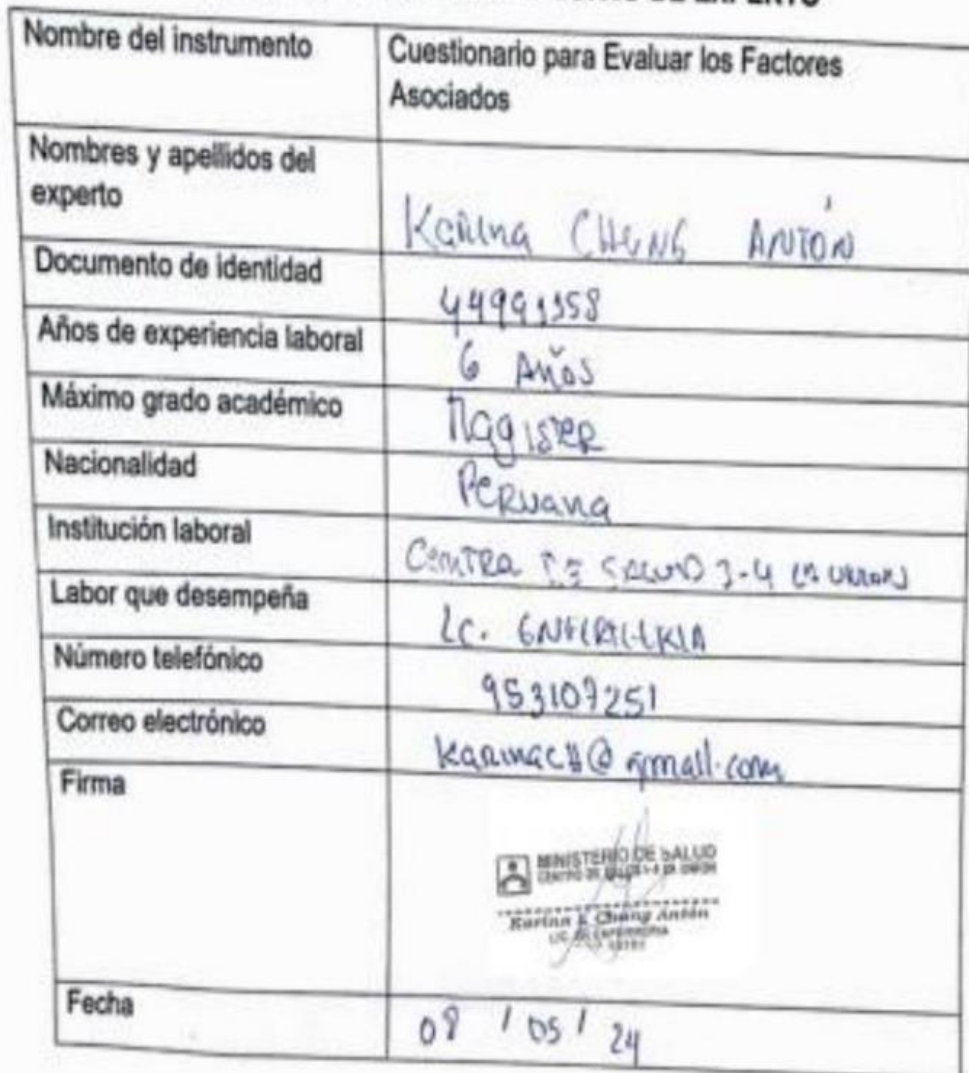 DE EXPERTO
Nombre del instrumento
Cuestionario para Evaluar los Factores
Asociados
Nombres y apellidos del
experto
Karina CHUNG ANTÓN
Documento de identidad
44991358
Años de experiencia laboral
6 Años
Máximo grado académico
Magister
Nacionalidad
Peruana
Institución laboral
Centro DE SALUD I-4 LA UNION
Labor que desempeña
Lc. ENFERMERIA
Número telefónico
953107251
Correo electrónico
KarinaCH@gmail.com
Firma
MINISTERIO DE SALUD
CENTRO DE SALUD I-4 LA UNION
Karina Chung Antón
LIC. EN ENFERMERIA
Fecha
08 / 05 / 24